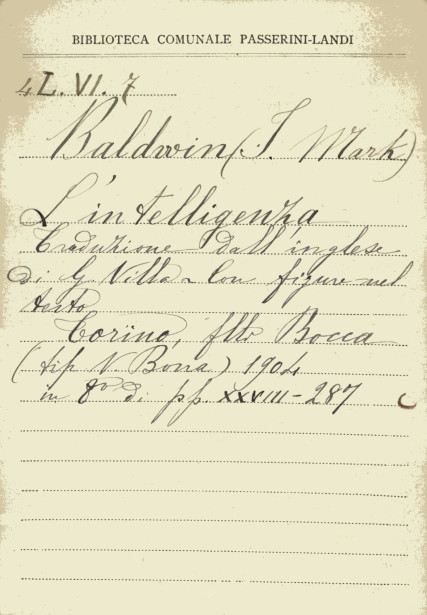 BIBLIOTECA COMUNALE PASSERINI-LANDI
4 L. VI. 7
Baldwin (J. Mark)
L'intelligenza
Traduzione dall'inglese
di G. Villa - Con figure nel
testo
Torino, flli Bocca
(tip V. Bona) 1904
in 8º di pp. XXVIII - 287